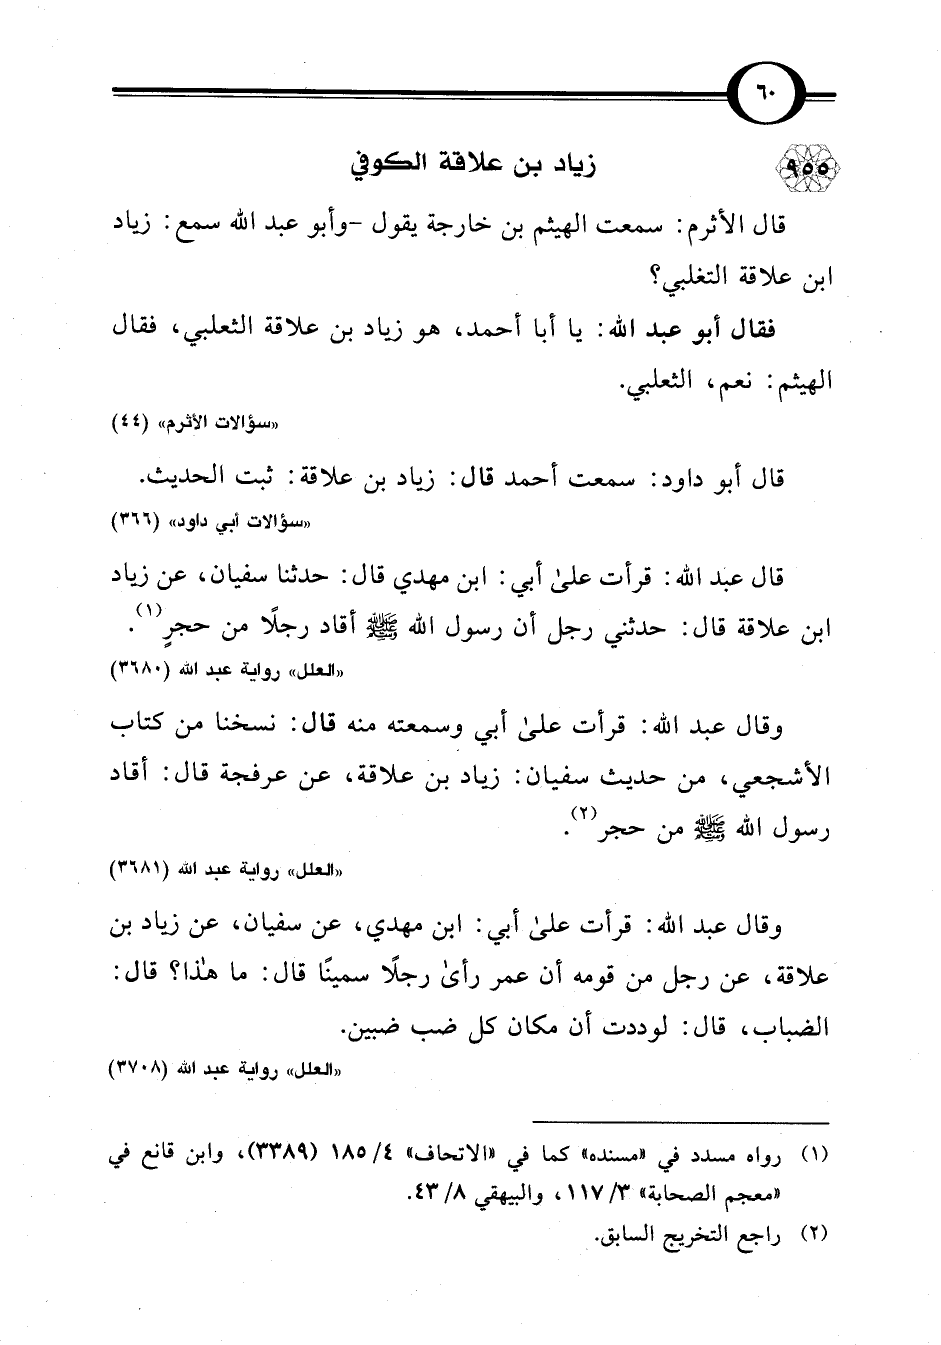 ٦٠
٩٥٥ زياد بن علاقة الكوفي
قال الأثرم: سمعت الهيثم بن خارجة يقول -وأبو عبد الله سمع: زياد
ابن علاقة التغلبي؟
فقال أبو عبد الله: يا أبا أحمد، هو زياد بن علاقة الثعلبي، فقال
الهيثم: نعم، الثعلبي.
«سؤالات الأثرم» (٤٤)
قال أبو داود: سمعت أحمد قال: زياد بن علاقة: ثبت الحديث.
«سؤالات أبي داود» (٣٦٦)
قال عبد الله: قرأت علىٰ أبي: ابن مهدي قال: حدثنا سفيان، عن زياد
ابن علاقة قال: حدثني رجل أن رسول الله ﷺ أقاد رجلًا من حجرٍ(١).
«العلل» رواية عبد الله (٣٦٨٠)
وقال عبد الله: قرأت علىٰ أبي وسمعته منه قال: نسخنا من كتاب
الأشجعي، من حديث سفيان: زياد بن علاقة، عن عرفجة قال: أقاد
رسول الله ﷺ من حجر(٢).
«العلل» رواية عبد الله (٣٦٨١)
وقال عبد الله: قرأت علىٰ أبي: ابن مهدي، عن سفيان، عن زياد بن
علاقة، عن رجل من قومه أن عمر رأىٰ رجلًا سمينًا قال: ما هٰذا؟ قال:
الضباب، قال: لوددت أن مكان كل ضب ضبين.
«العلل» رواية عبد الله (٣٧٠٨)
(١) رواه مسدد في «مسنده» كما في «الاتحاف» ٤/ ١٨٥ (٣٣٨٩)، وابن قانع في
«معجم الصحابة» ٣/ ١١٧، والبيهقي ٨/ ٤٣.
(٢) راجع التخريج السابق.